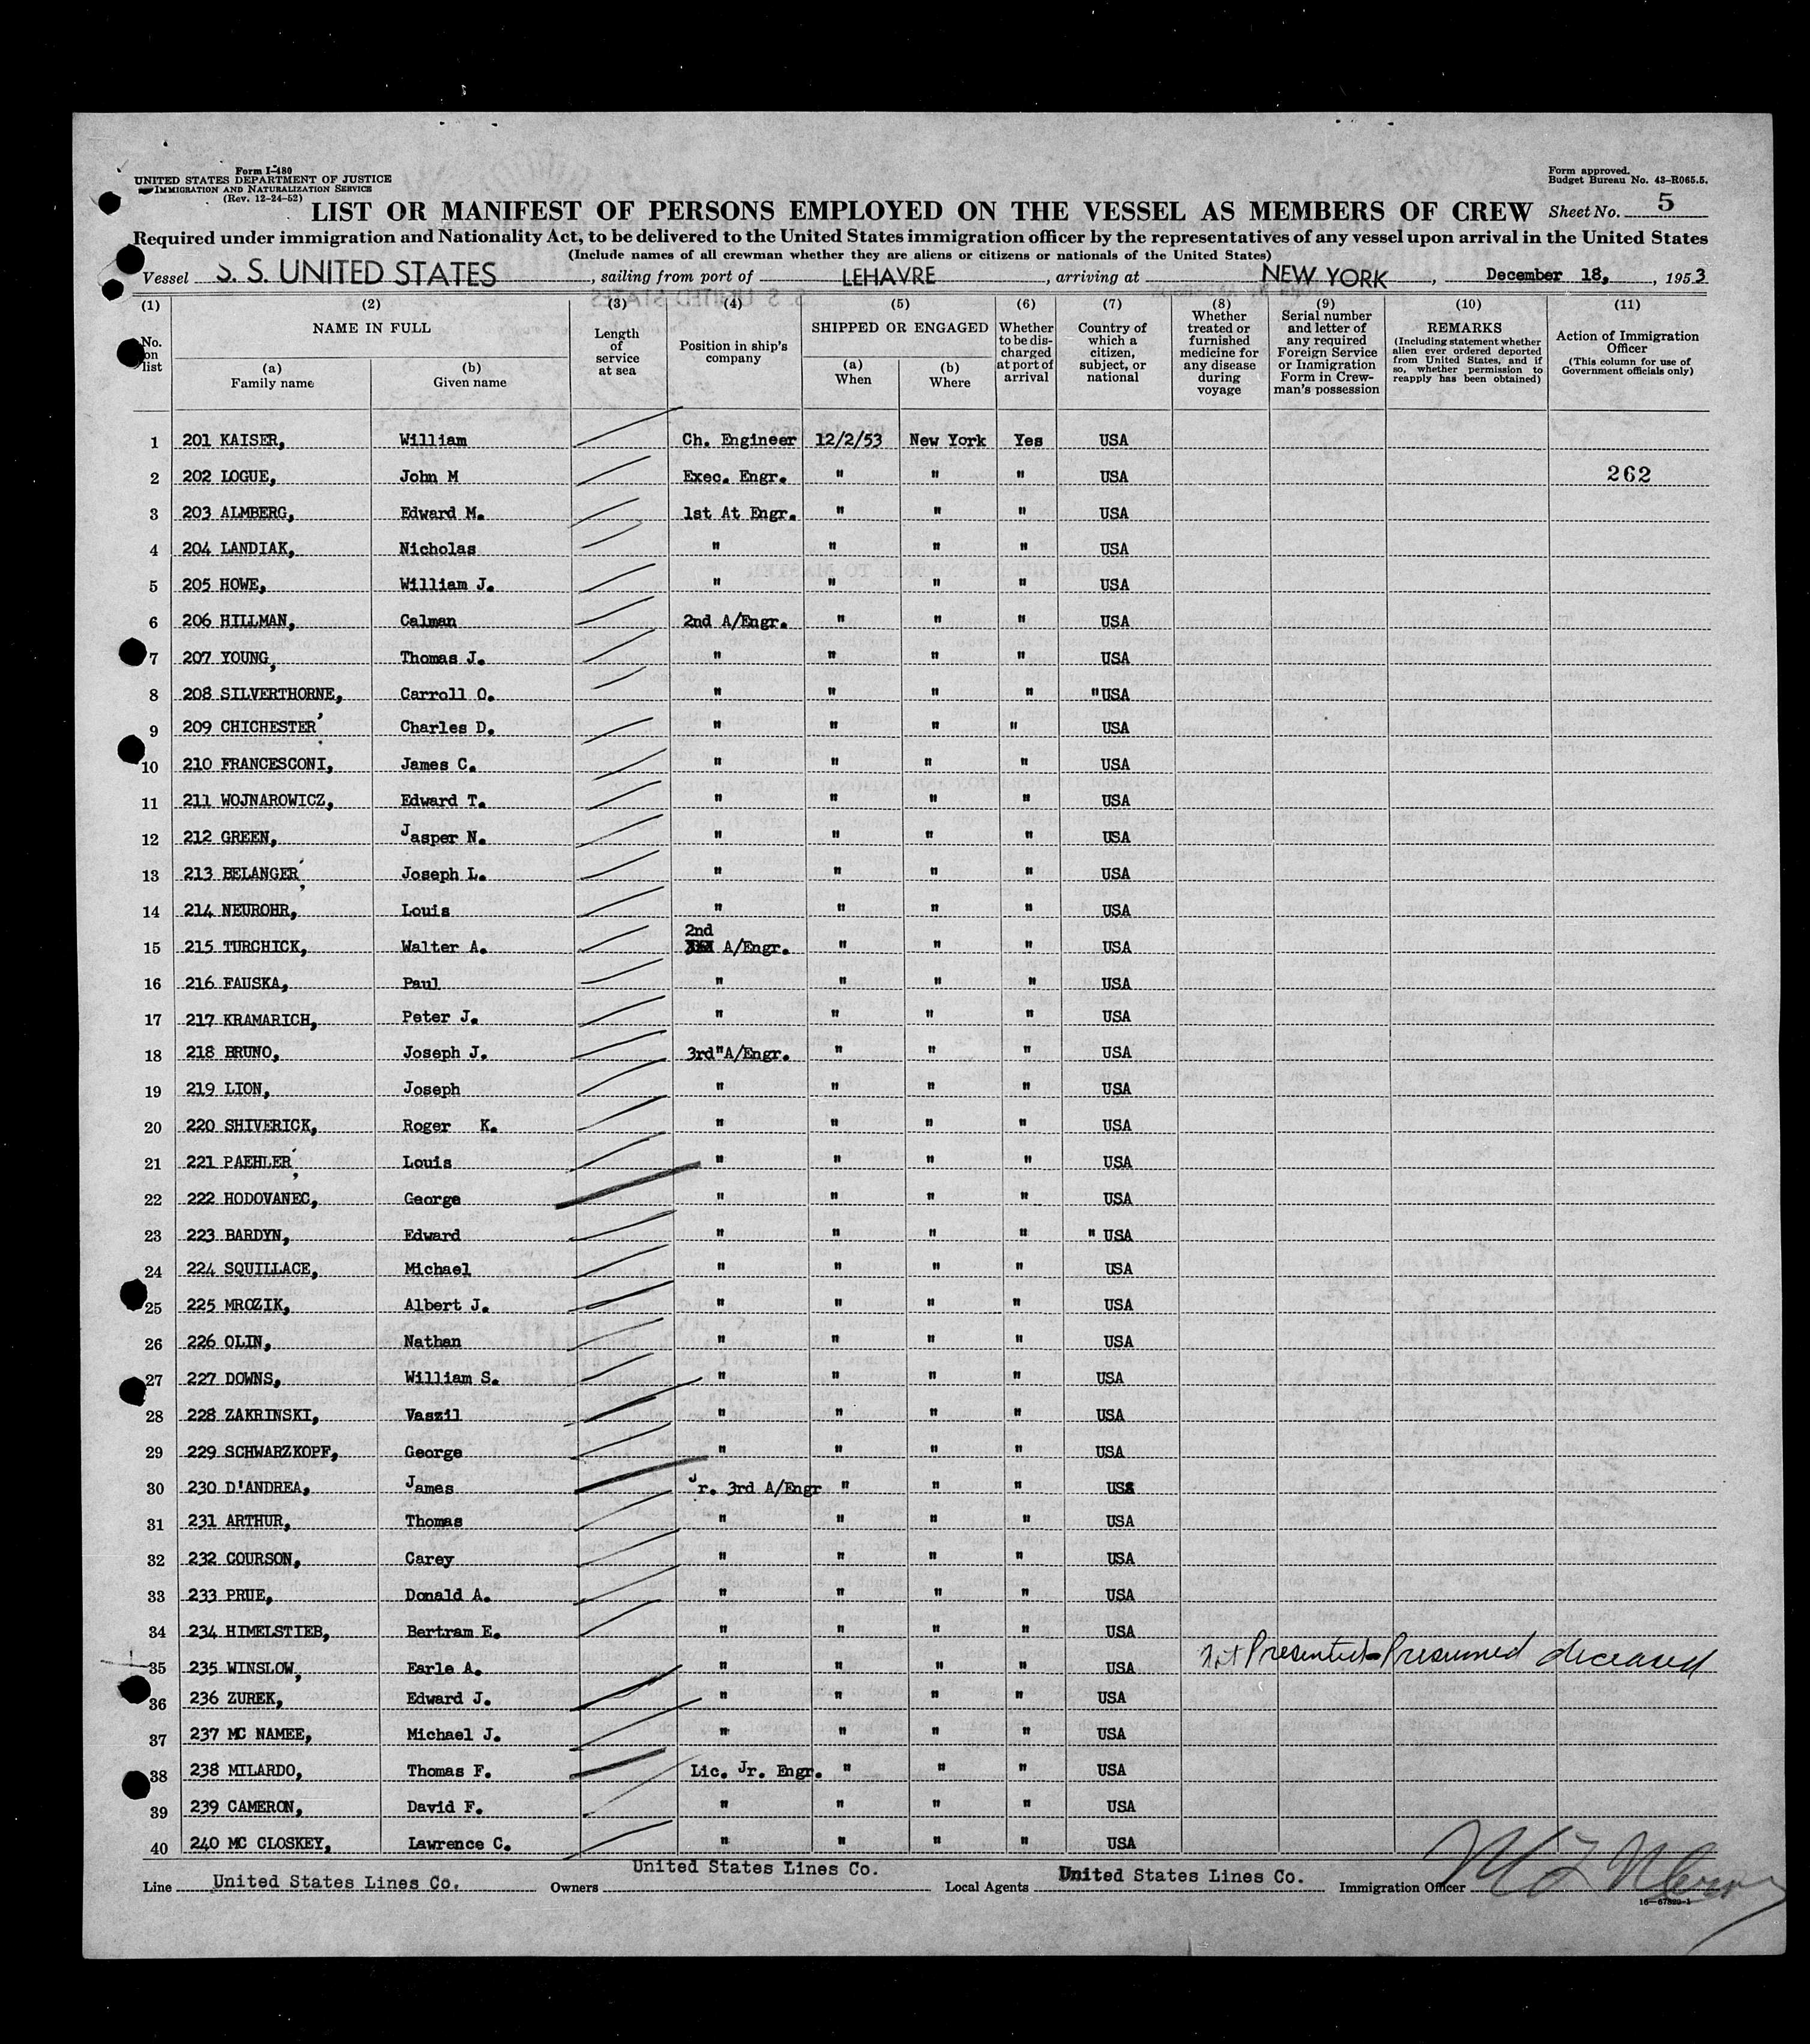 Form I-480
UNITED STATES DEPARTMENT OF JUSTICE
IMMIGRATION AND NATURALIZATION SERVICE
(Rev. 12-24-52)
Form approved.
Budget Bureau No. 43-R065.5.
LIST OR MANIFEST OF PERSONS EMPLOYED ON THE VESSEL AS MEMBERS OF CREW Sheet No. 5
Required under immigration and Nationality Act, to be delivered to the United States immigration officer by the representatives of any vessel upon arrival in the United States
(Include names of all crewman whether they are aliens or citizens or nationals of the United States)
Vessel S. S. UNITED STATES, sailing from port of LEHAVRE, arriving at NEW YORK, December 18, 1953
(1) No. on list
(2) NAME IN FULL
(a) Family name
(b) Given name
(3) Length of service at sea
(4) Position in ship's company
(5) SHIPPED OR ENGAGED
(a) When
(b) Where
(6) Whether to be discharged at port of arrival
(7) Country of which a citizen, subject, or national
(8) Whether treated or furnished medicine for any disease during voyage
(9) Serial number and letter of any required Foreign Service or Immigration Form in Crewman's possession
(10) REMARKS (Including statement whether alien ever ordered deported from United States, and if so, whether permission to reapply has been obtained)
(11) Action of Immigration Officer (This column for use of Government officials only)
1 201 KAISER, William Ch. Engineer 12/2/53 New York Yes USA
2 202 LOGUE, John M Exec. Engr. " " " USA 262
3 203 ALMBERG, Edward M. 1st At Engr. " " " USA
4 204 LANDIAK, Nicholas " " " " USA
5 205 HOWE, William J. " " " " USA
6 206 HILLMAN, Calman 2nd A/Engr. " " " USA
7 207 YOUNG, Thomas J. " " " " USA
8 208 SILVERTHORNE, Carroll O. " " " " "USA
9 209 CHICHESTER, Charles D. " " " " USA
10 210 FRANCESCONI, James C. " " " " USA
11 211 WOJNAROWICZ, Edward T. " " " " USA
12 212 GREEN, Jasper N. " " " " USA
13 213 BELANGER, Joseph L. " " " " USA
14 214 NEUROHR, Louis " " " " USA
15 215 TURCHICK, Walter A. 2nd A/Engr. " " " USA
16 216 FAUSKA, Paul " " " " USA
17 217 KRAMARICH, Peter J. " " " " USA
18 218 BRUNO, Joseph J. 3rd"A/Engr. " " " USA
19 219 LION, Joseph " " " " USA
20 220 SHIVERICK, Roger K. " " " " USA
21 221 PAEHLER, Louis " " " " USA
22 222 HODOVANEC, George " " " " USA
23 223 BARDYN, Edward " " " " " USA
24 224 SQUILLACE, Michael " " " " USA
25 225 MROZIK, Albert J. " " " " USA
26 226 OLIN, Nathan " " " " USA
27 227 DOWNS, William S. " " " " USA
28 228 ZAKRINSKI, Vaszil " " " " USA
29 229 SCHWARZKOPF, George " " " " USA
30 230 D'ANDREA, James Jr. 3rd A/Engr " " " USA
31 231 ARTHUR, Thomas " " " " USA
32 232 COURSON, Carey " " " " USA
33 233 PRUE, Donald A. " " " " USA
34 234 HIMELSTIEB, Bertram E. " " " " USA
35 235 WINSLOW, Earle A. " " " " USA Not Presented - Presumed deceased
36 236 ZUREK, Edward J. " " " " USA
37 237 MC NAMEE, Michael J. " " " " USA
38 238 MILARDO, Thomas F. Lic. Jr. Engr. " " " USA
39 239 CAMERON, David F. " " " " USA
40 240 MC CLOSKEY, Lawrence C. " " " " USA
Line United States Lines Co. Owners United States Lines Co. Local Agents United States Lines Co. Immigration Officer